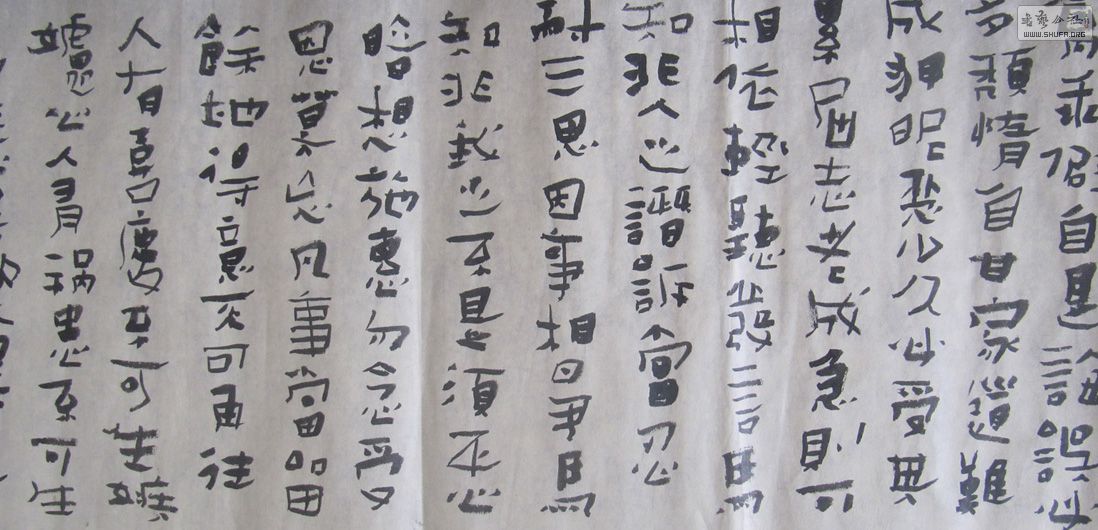 乖僻自是誨誤必
多頹惰自甘家道難
成狎昵惡少久必受其
累屈志老成急則可
相依輕聽發言焉
知非人之譖訴當忍
耐三思因事相爭焉
知非我之不是須平心
暗想施惠勿念受
恩莫忘凡事當留
餘地得意不可再往
人有喜慶不可生嫉
心人有禍患不可生
WWW.SHUFA.ORG